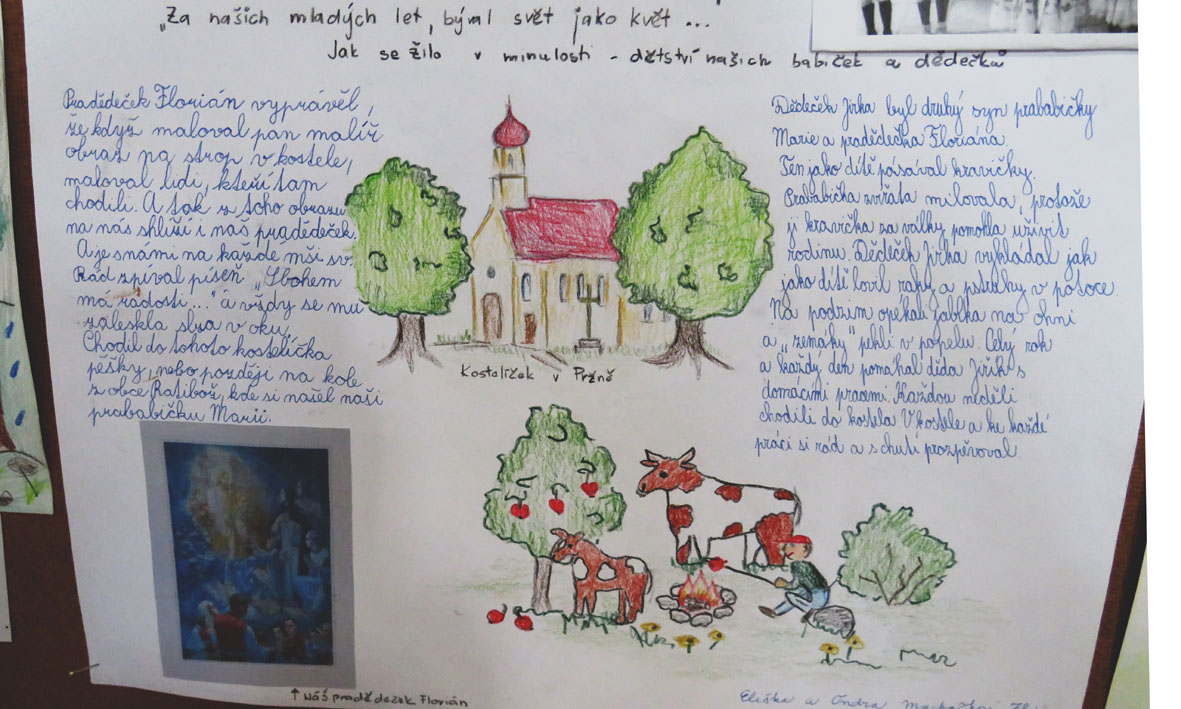 „Za našich mladých let, býval svět jako květ ...
Jak se žilo v minulosti - dětství našich babiček a dědečků
Pradědeček Florián vyprávěl,
že když maloval pan malíř
obraz na strop v kostele,
maloval lidi, kteří tam
chodili. A tak z toho obrazu
na nás shlíží i náš pradědeček.
A je s námi na každé mši sv.
Rád zpíval píseň „Sbohem
má radosti..." a vždy se mu
zaleskla slza v oku.
Chodil do tohoto kostelíčka
pěšky, nebo později na kole
z obce Ratiboř, kde si našel naši
prababičku Marii.
Dědeček Jirka byl druhý syn prababičky
Marie a pradědečka Floriána.
Ten jako dítě pásával kravičky.
Prababička zvířata milovala, protože
jí kravička za války pomohla uživit
rodinu. Dědeček Jirka vykládal jak
jako dítě lovil raky a pstruhy v potoce.
Na podzim opékali jablka na ohni
a „zemáky" pekli v popelu. Celý rok
a každý den pomáhal děda Jiřík s
domácími pracemi. Každou neděli
chodili do kostela V kostele a ke každé
práci si rád a s chutí prozpěvoval
Kostelíček v Pržně
↑ Náš pradědeček Florián
Eliška a Ondra